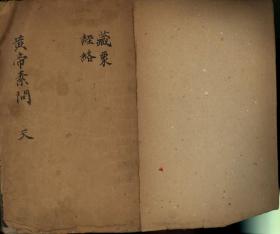 藏象
經絡
黃帝素問 天